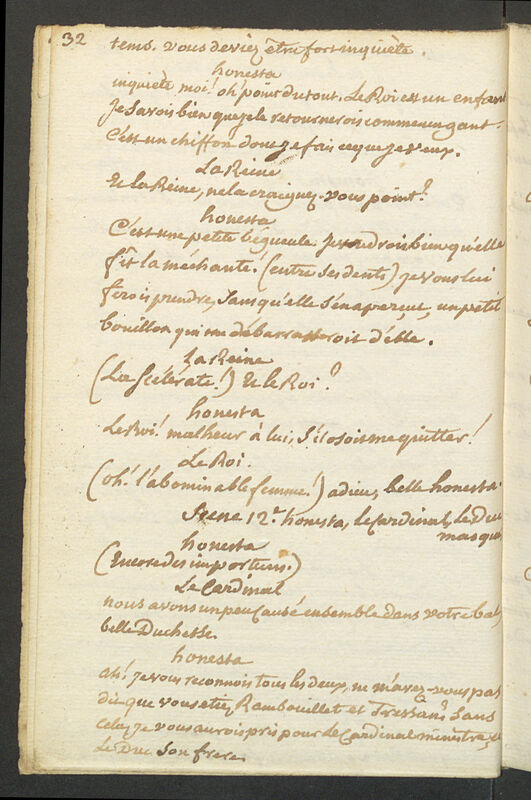 32
tems. vous deviez être fort inquiète.
honesta
inquiète moi! oh! point du tout. Le Roi est un enfant
Je savois bien que je le retournerois comme un gant.
C'est un chiffon dont je fais ce que je veux.
La Reine
Et la Reine, ne la craignez-vous point?
honesta
C'est une petite bégueule. Je voudrois bien qu'elle
fît la méchante. (entre ses dents) je vous lui
ferois prendre, sans qu'elle s'en aperçut, un petit
bouillon qui me débarrasseroit d'elle.
La Reine
(La Scélérate!) Et le Roi?
honesta
Le Roi! malheur à lui, s'il osoit me quitter!
Le Roi.
(oh! l'abominable femme!) adieu, belle honesta.
Scene 12.e honesta, le Cardinal, le Duc
masqués
honesta
(Encore des importuns.)
Le Cardinal
nous avons un peu causé ensemble dans votre bal,
belle Duchesse.
honesta
ah! je vous reconnois tous les deux, ne m'avez-vous pas
dit que vous etiez Rambouillet et Tressan? Sans
cela, je vous aurois pris pour le Cardinal ministre, et
Le Duc son frere.